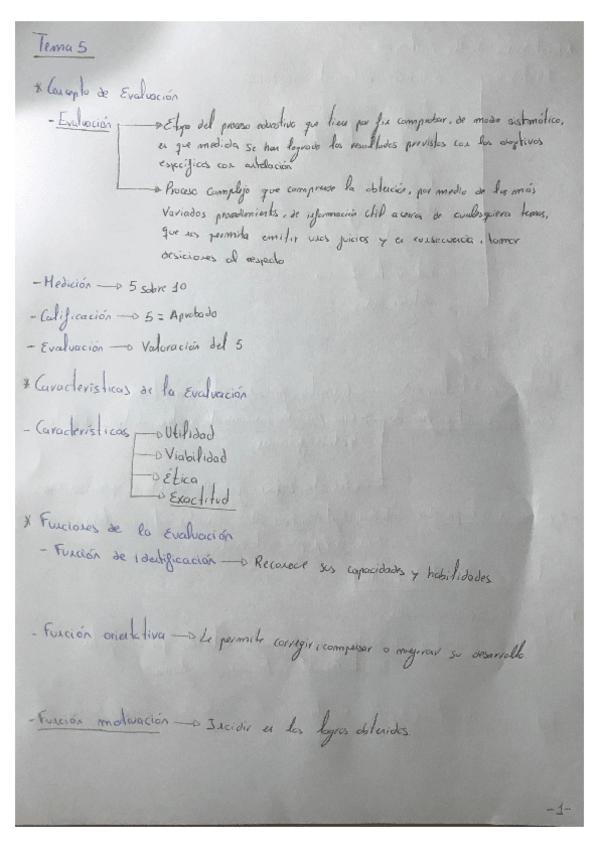 Tema 5
* Concepto de Evaluación
- Evaluación → Etapa del proceso educativo que tiene por fin comprobar, de modo sistemático,
en que medida se han logrado los resultados previstos con los objetivos
específicos con antelación
→ Proceso complejo que comprende la obtención, por medio de los más
variados procedimients, de información útil acerca de cualesquiera temas,
que nos permita emitir unos juicios y en consecuencia, tomar
desiciones al respecto
- Medición → 5 sobre 10
- Calificación → 5 = Aprobado
- Evaluación → Valoración del 5
* Características de la Evaluación
- Características → Utilidad
→ Viabilidad
→ Ética
→ Exactitud
* Funciones de la Evaluación
- Función de identificación → Reconoce sus capacidades y habilidades
- Función orientativa → Le permite corregir, compensar o mejorar su desarrollo
- Función motivación → Incidir en los logros obtenidos
-1-